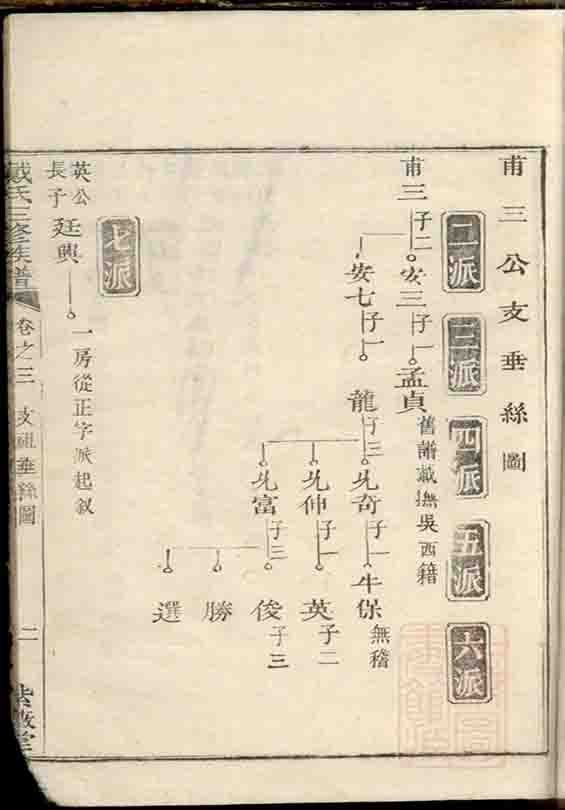 甫三公支垂絲圖
二派
三派
四派
五派
六派
甫三
子二
安三
子一
孟貞
舊譜載撫吳西籍
安七
子一
龍
子三
兆奇
子一
牛保
無稽
兆仲
子一
英
子二
兆富
子三
俊
子三
勝
選
七派
英公長子
廷興
一房從正字派起敘
戴氏三修族譜
卷之三
支祖垂絲圖
二
紫薇堂